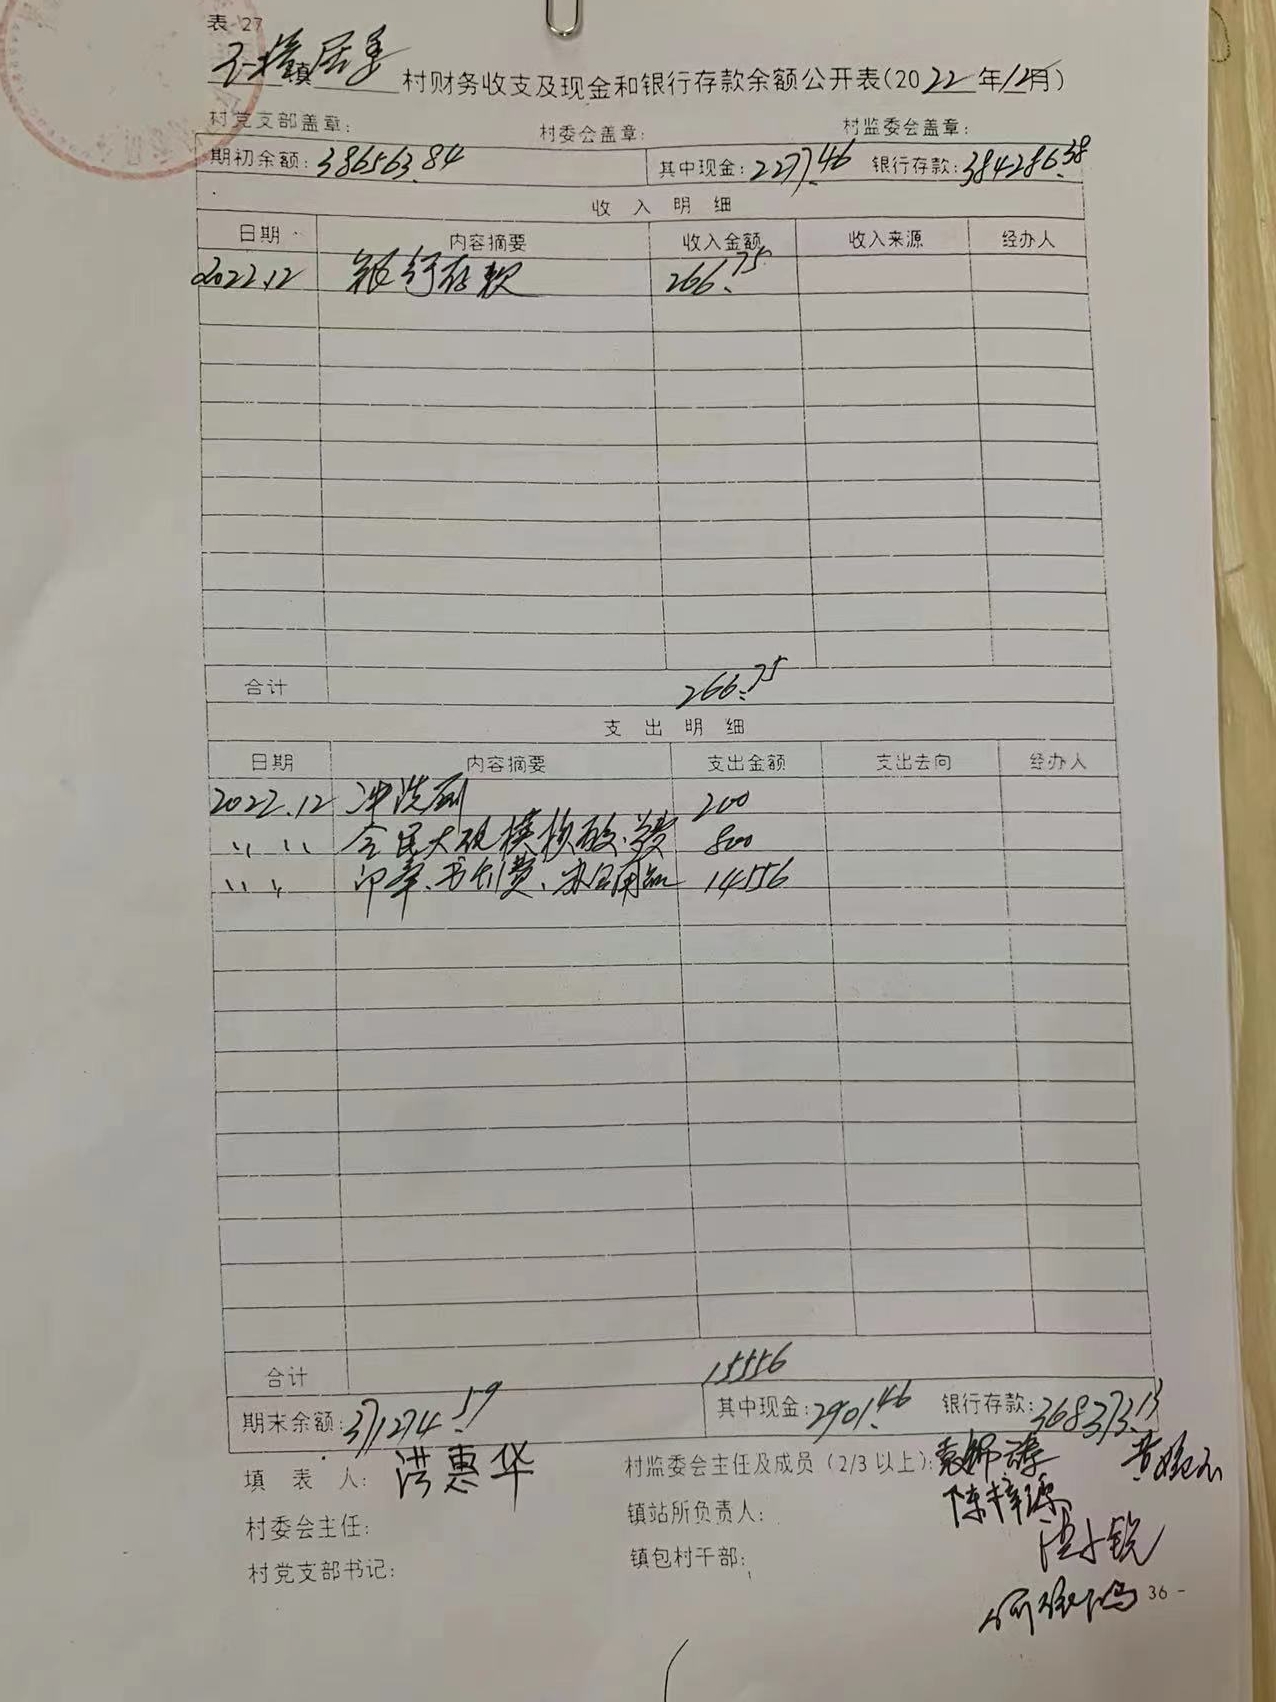 表 27
镇居委村财务收支及现金和银行存款余额公开表(2022年12月)
村党支部盖章: 村委会盖章: 村监委会盖章:
期初余额: 386563.84 其中现金: 2277.46 银行存款: 384286.38
收 入 明 细
日期 内容摘要 收入金额 收入来源 经办人
2022.12 银行存款 266.75
合计 266.75
支 出 明 细
日期 内容摘要 支出金额 支出去向 经办人
2022.12 冲洗 200
〃 〃 全民大规模核酸 费 800
〃 〃 印章、书刊费、办公用品 14556
合计 15556
期末余额: 371274.59 其中现金: 2901.46 银行存款: 368373.13
填 表 人: 洪惠华 村监委会主任及成员(2/3 以上):
陈梓源
村委会主任: 镇站所负责人:
村党支部书记: 镇包村干部:
36 -